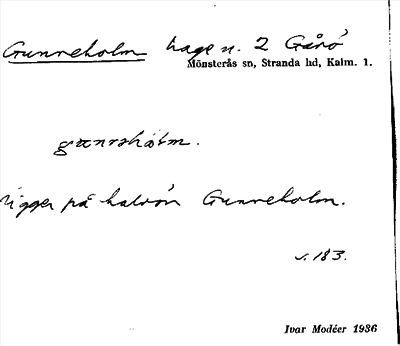 Gunneholm hage n. 2 Gårö
Mönsterås sn, Stranda hd, Kalm. 1.
Ligger på halvön Gunneholm.
s. 183.
Ivar Modéer 1936